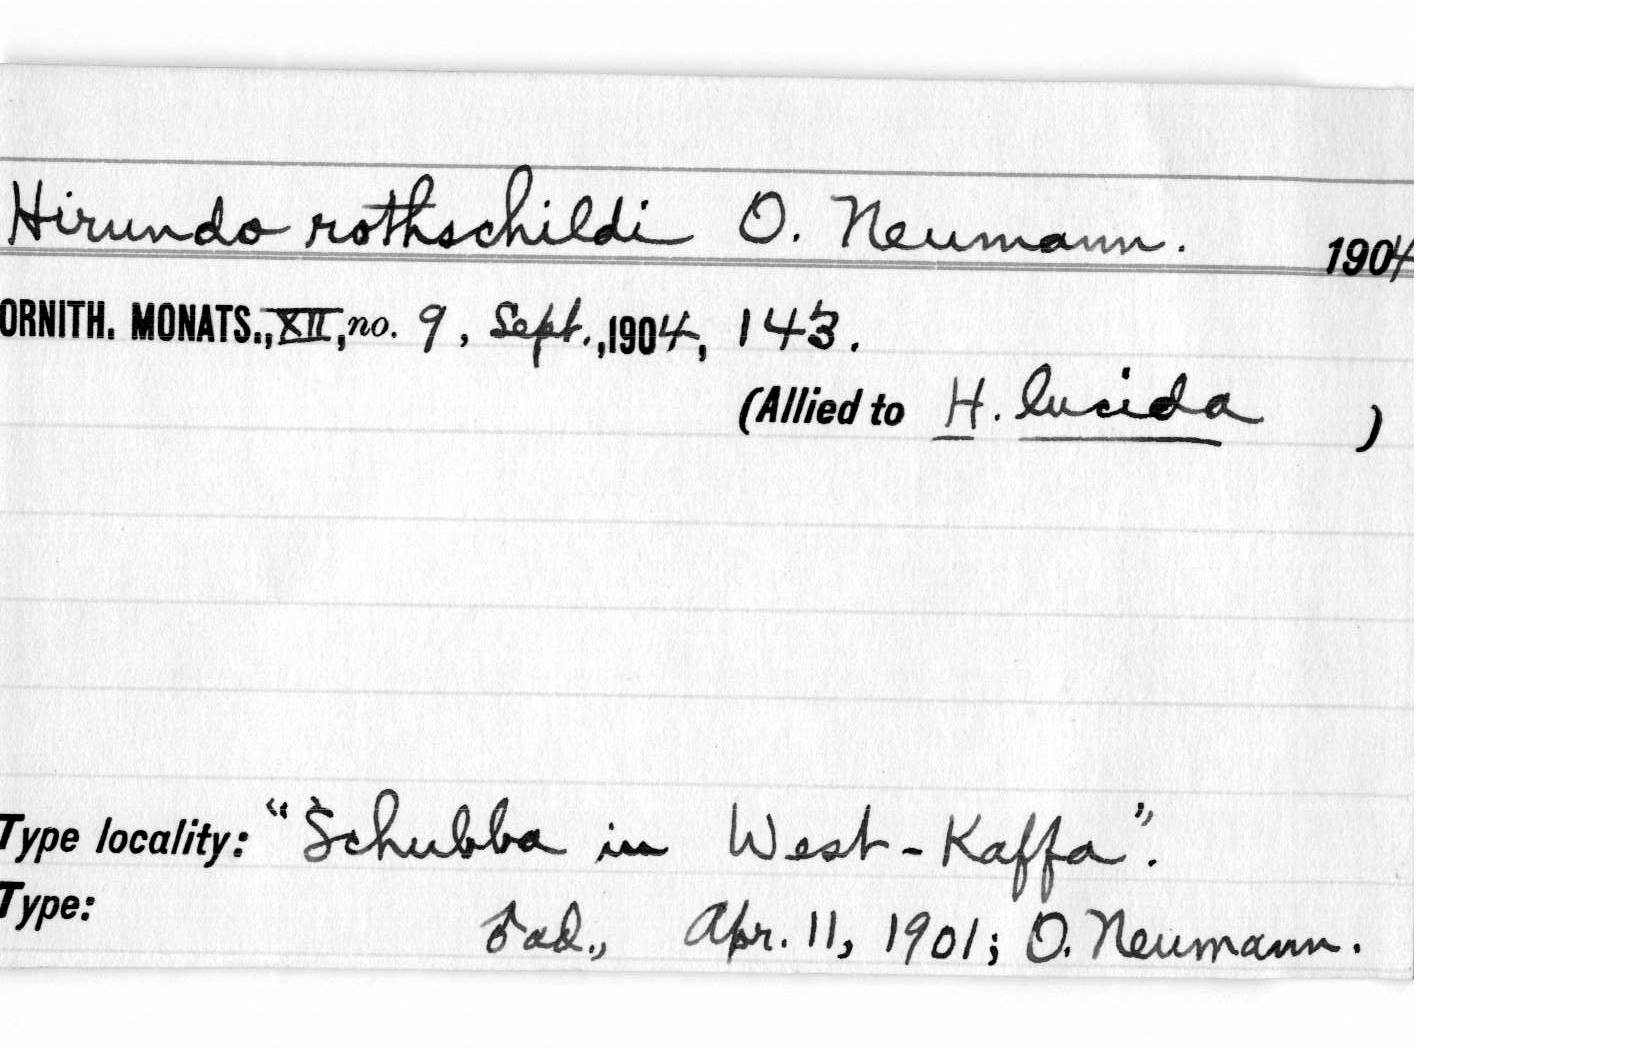 Hirundo rothschildi O. Neumann. 1904
ORNITH. MONATS., XII, no. 9, Sept., 1904, 143.
(Allied to H. lucida )
Type locality: "Schubba in West-Kaffa".
Type:
♂ ad., Apr. 11, 1901; O. Neumann.